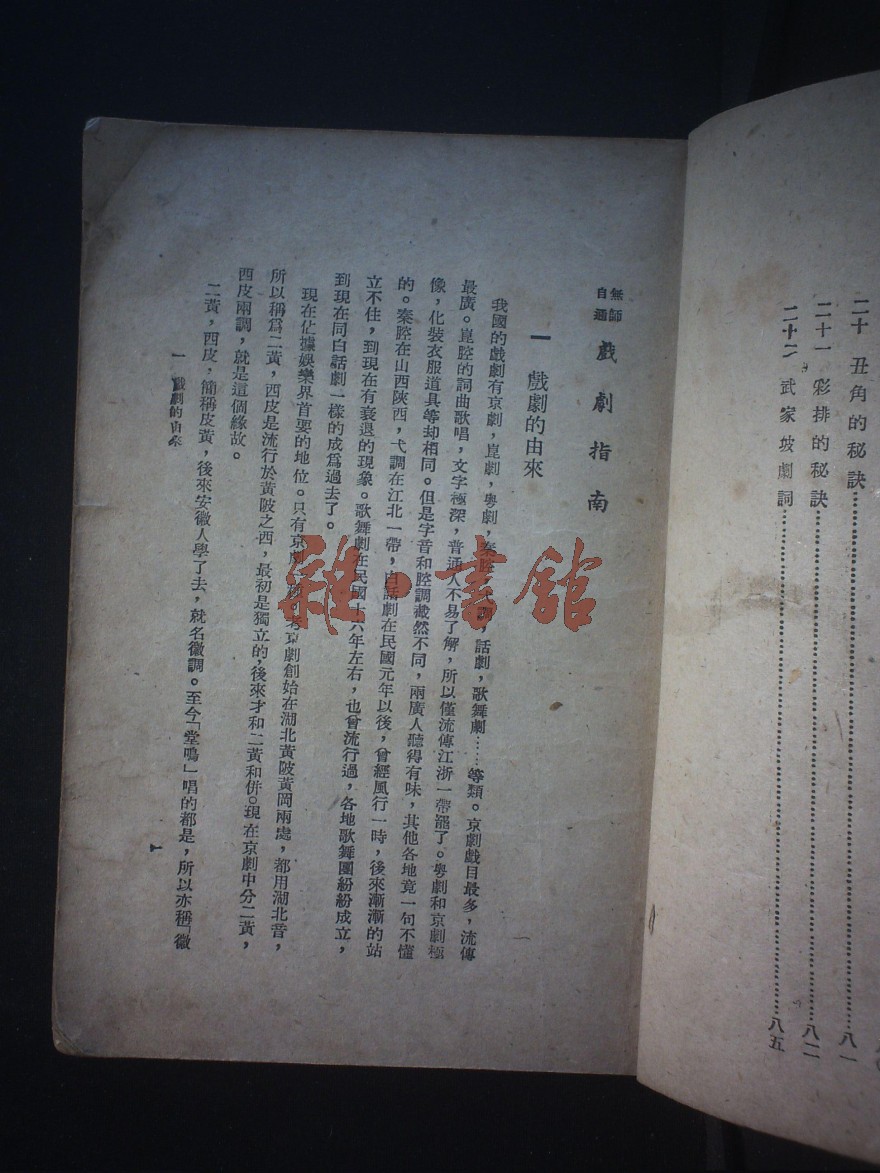 二十　丑角的秘訣……………八一
二十一　彩排的秘訣……………八二
二十二　武家坡劇詞……………八五
無師自通　戲劇指南
一　戲劇的由來
我國的戲劇有京劇，崑劇，粵劇，秦腔，調，話劇，歌舞劇……等類。京劇戲目最多，流傳
最廣。崑腔的詞曲歌唱，文字極深，普通人不易了解，所以僅流傳江浙一帶罷了。粵劇和京劇極
像，化裝衣服道具等却相同。但是字音和腔調截然不同，兩廣人聽得有味，其他各地竟一句不懂
的。秦腔在山西陝西，弋調在江北一帶，白話劇在民國元年以後，曾經風行一時，後來漸漸的站
立不住，到現在有衰退的現象。歌舞劇在民國十六年左右，也曾流行過，各地歌舞團紛紛成立，
到現在同白話劇一樣的成爲過去了。
現在佔據娛樂界首要的地位。只有京劇一種，考京劇創始在湖北黃陂黃岡兩處，都用湖北音，
所以稱爲二黃，西皮是流行於黃陂之西，最初是獨立的，後來才和二黃和併。現在京劇中分二黃，
西皮兩調，就是這個緣故。
二黃，西皮，簡稱皮黃，後來安徽人學了去，就名徽調。至今「堂鳴」唱的都是，所以亦稱「徽
一　戲劇的由來
一
雜·書館